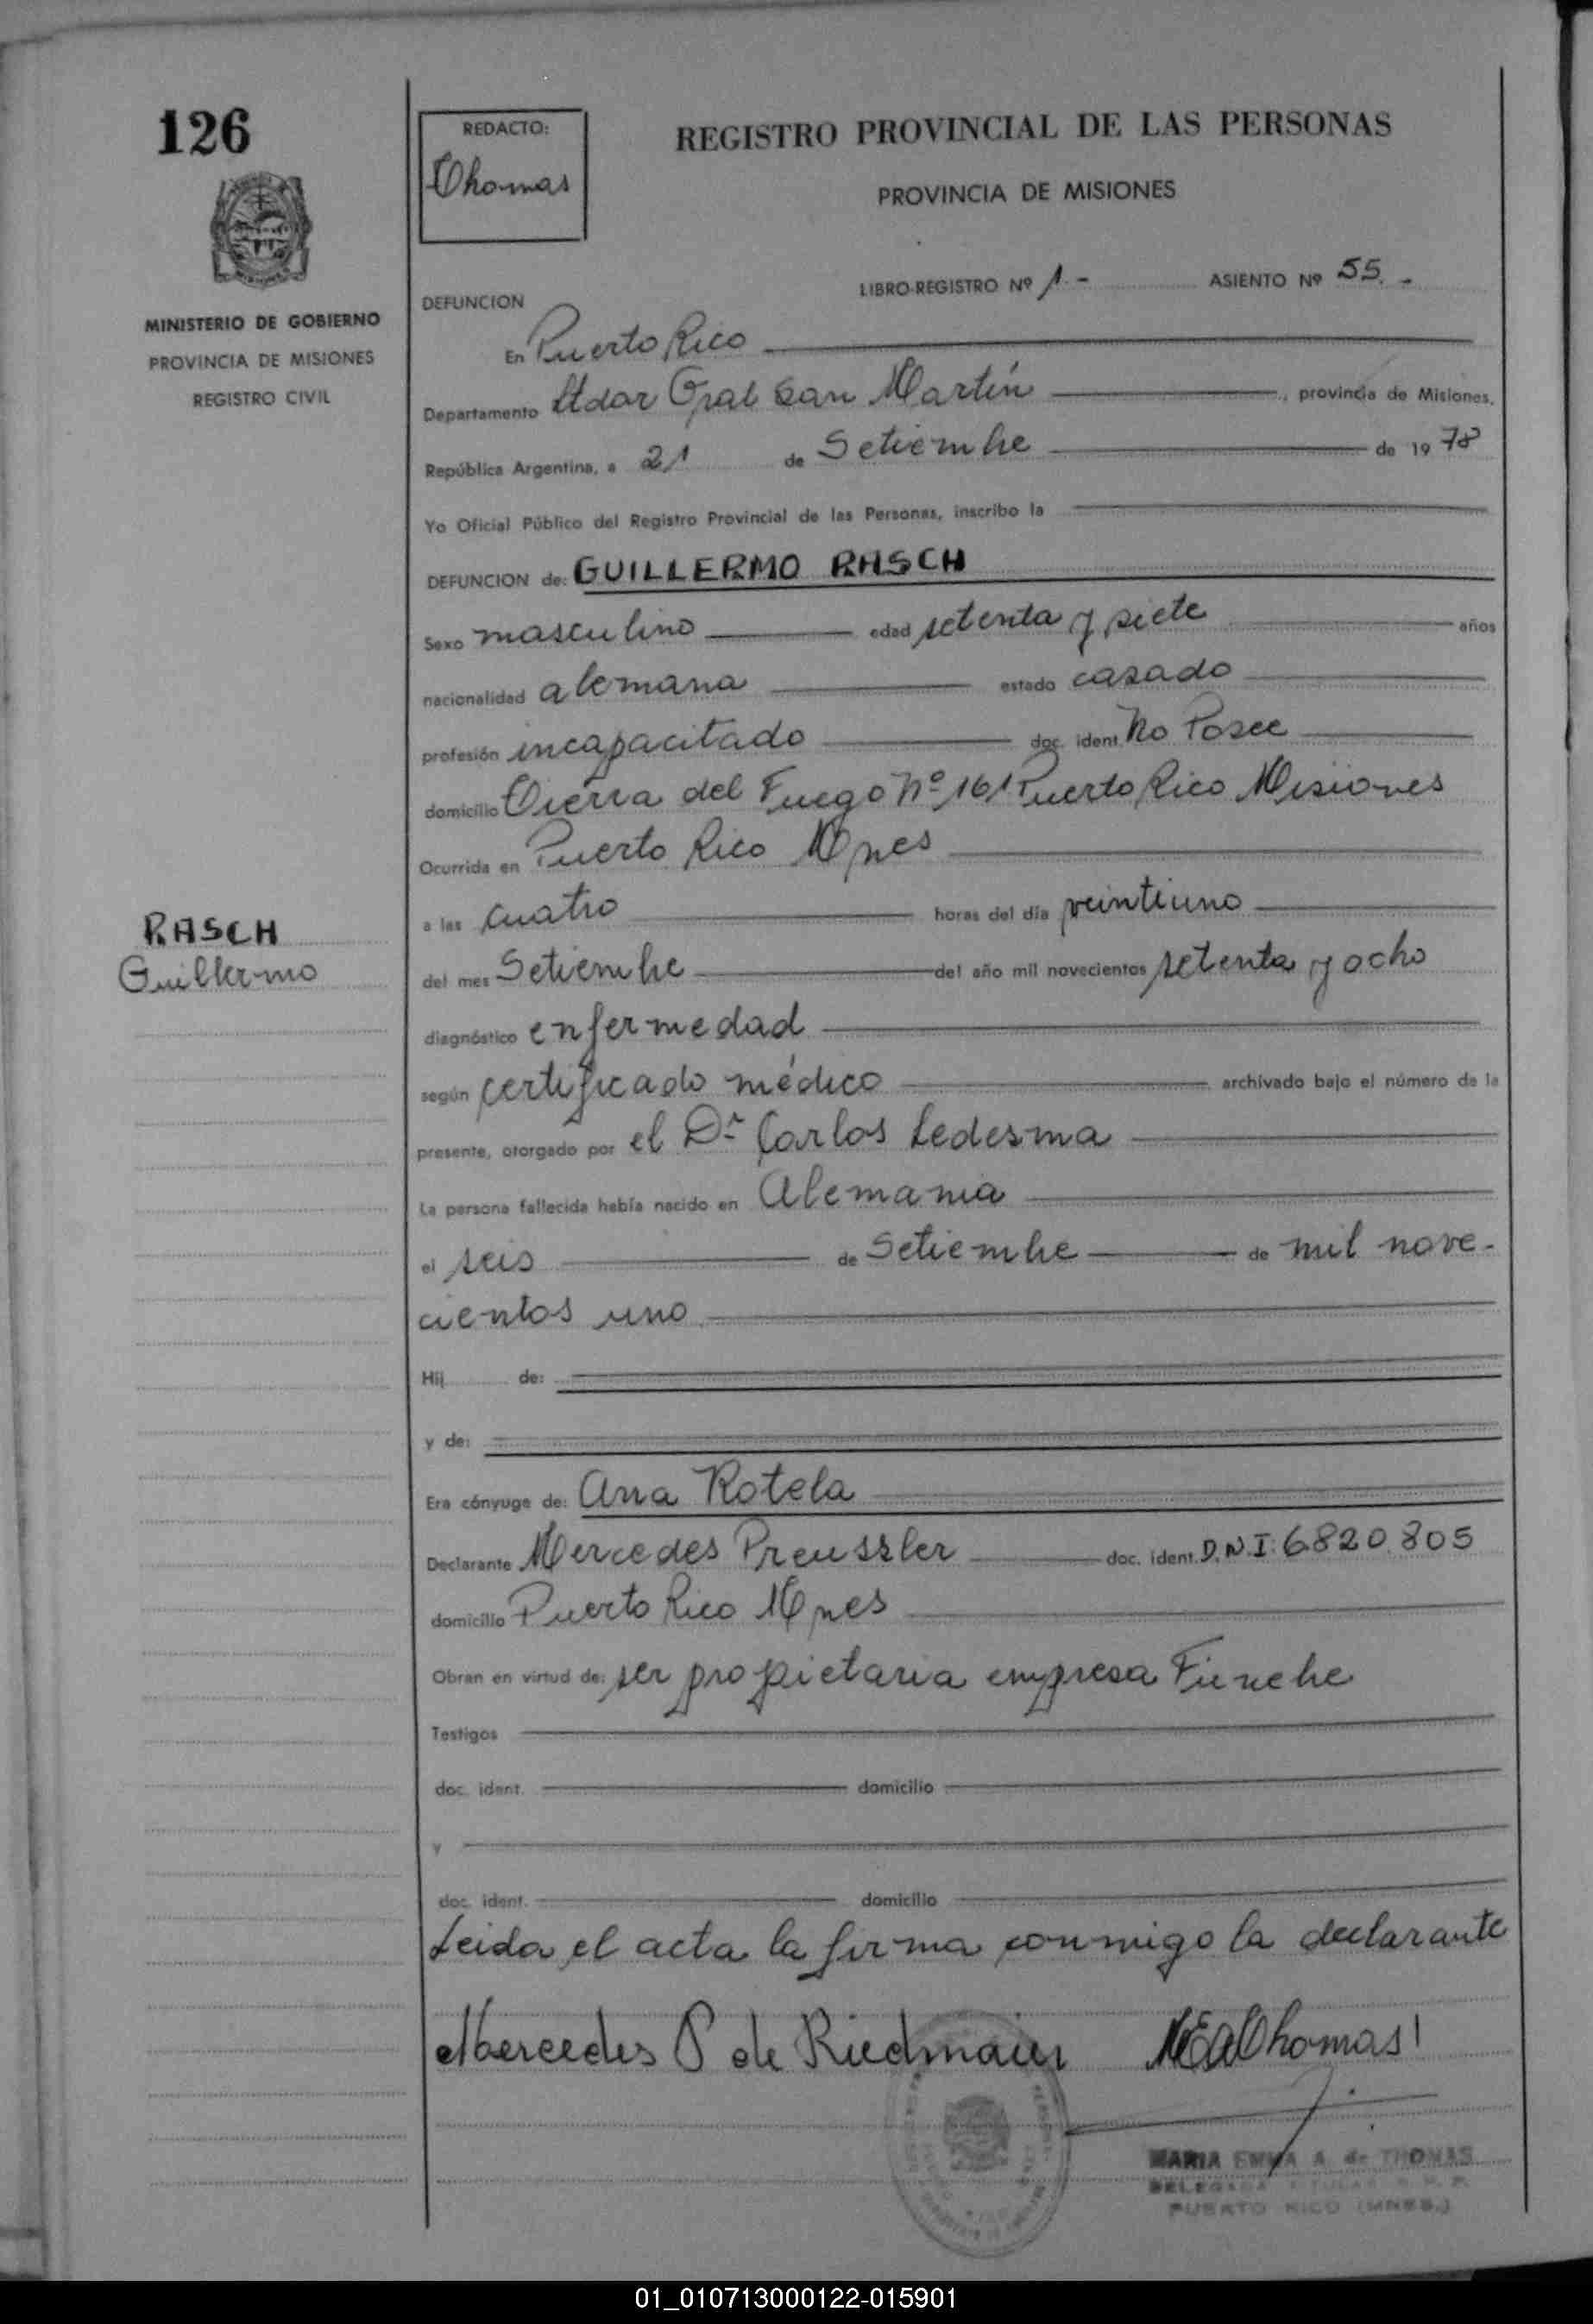 126
REDACTO:
Thomas
REGISTRO PROVINCIAL DE LAS PERSONAS
PROVINCIA DE MISIONES
MINISTERIO DE GOBIERNO
PROVINCIA DE MISIONES
REGISTRO CIVIL
LIBRO-REGISTRO Nº 1.- ASIENTO Nº 55.-
DEFUNCION
En Puerto Rico
Departamento Ltdor Gral San Martín, provincia de Misiones,
República Argentina, a 21 de Setiembre de 1978
Yo Oficial Público del Registro Provincial de las Personas, inscribo la
DEFUNCION de: GUILLERMO RASCH
Sexo masculino edad setenta y siete años
nacionalidad alemana estado casado
profesión incapacitado doc. ident. No Posee
domicilio Tierra del Fuego Nº 161 Puerto Rico Misiones
Ocurrida en Puerto Rico Mnes
a las cuatro horas del día veintiuno
RASCH
Guillermo
del mes Setiembre del año mil novecientos setenta y ocho
diagnóstico enfermedad
según certificado médico archivado bajo el número de la
presente, otorgado por el Dr Carlos Ledesma
La persona fallecida había nacido en Alemania
el seis de Setiembre de mil nove-
cientos uno
Hij de:
y de:
Era cónyuge de: Ana Rotela
Declarante Mercedes Preussler doc. ident. D.N.I. 6.820.805
domicilio Puerto Rico Mnes
Obran en virtud de: ser propietaria empresa Fúnebre
Testigos
doc. ident. domicilio
y
doc. ident. domicilio
Leida el acta la firma conmigo la declarante
Mercedes P de Riedmaier MEAThomas
MARIA EMMA A. de THOMAS
DELEGADA TITULAR R. P. P.
PUERTO RICO (MNES.)
01_010713000122-015901